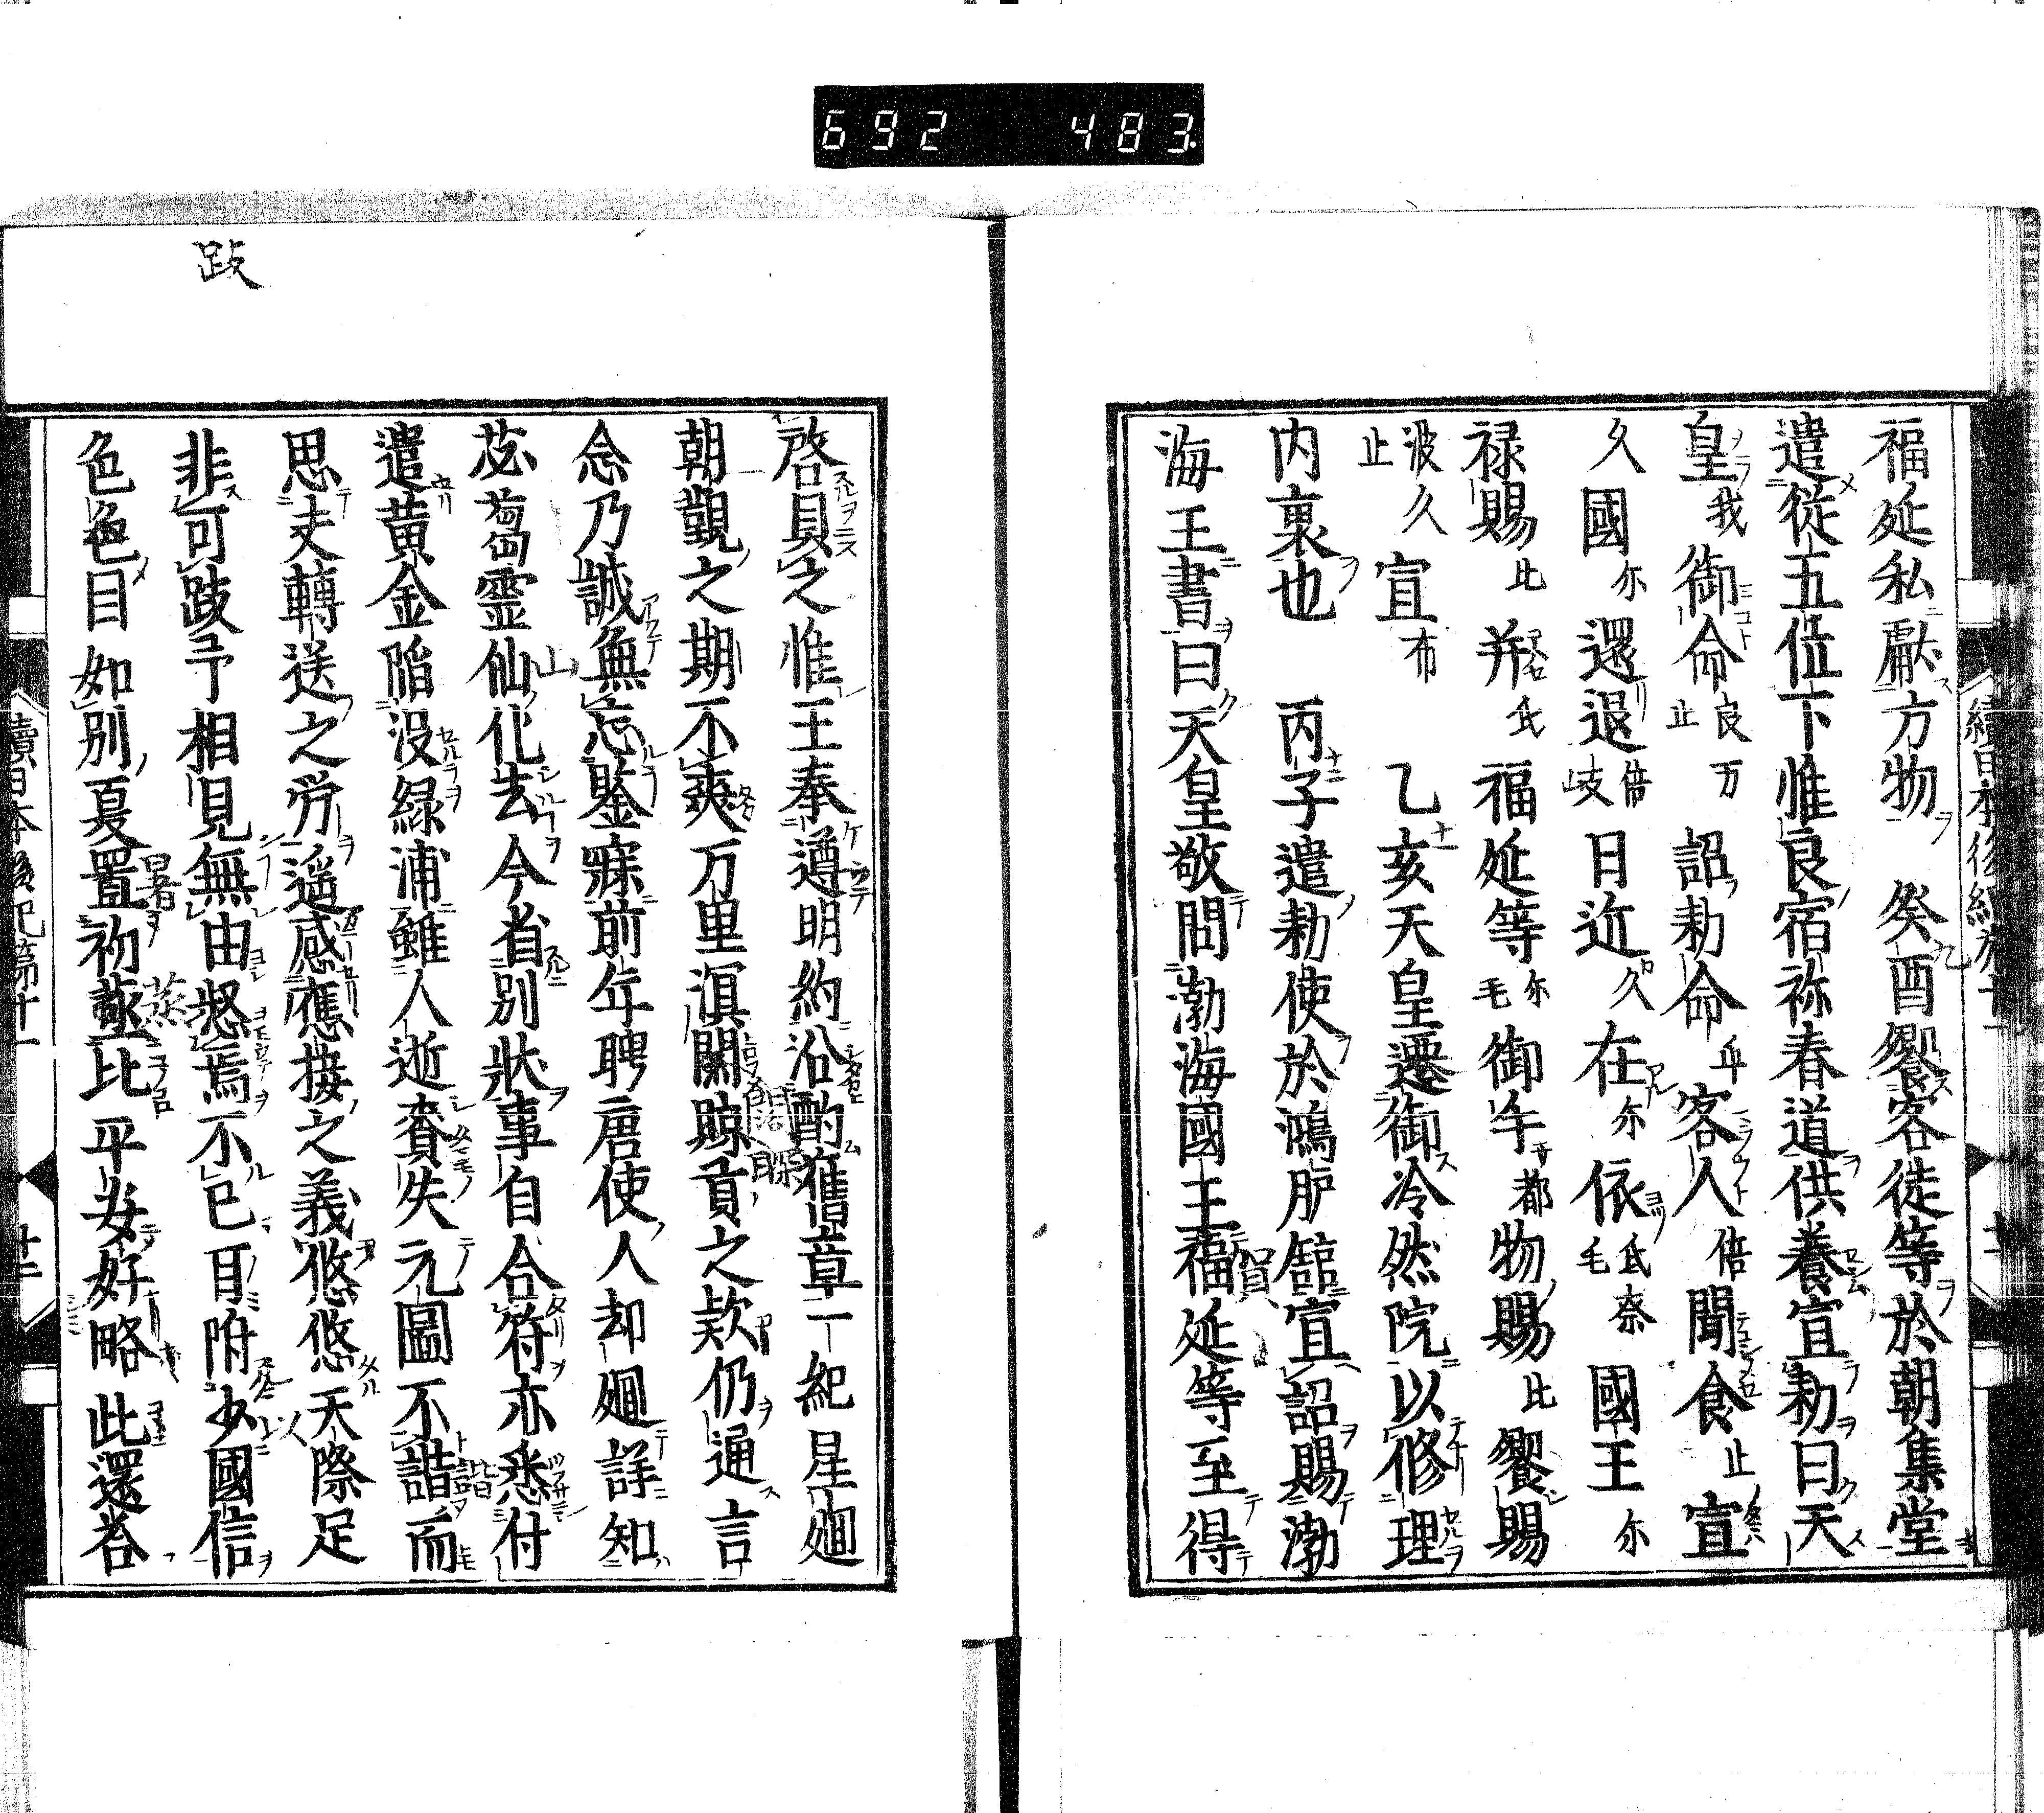 692 483
福延私獻方物癸酉饗客徒等於朝集堂
遣從五位下惟良宿祢春道供養宣勅曰天
皇我御命良万止詔勅命乎客人倍聞食止宣
久國尓還退倍岐日近久在尓依氐奈毛國王尓
禄賜比并氐福延等尓毛御手都物賜比饗賜
波久止宣布乙亥天皇遷御冷然院以修理
内裏也丙子遣勅使於鴻臚舘宣詔賜渤
海王書曰天皇敬問渤海國王福延等至得
賀
啓具之惟王奉遵明約沿酌舊章一紀星廻
朝覲之期不爽万里溟闊賝貢之款仍通言
念乃誠無忘鑒寐前年聘唐使人却廻詳知
苾蒭靈仙化去今省別狀事自合符亦悉付
遣黄金陷没綠浦雖人逝賚失元圖不諧而
思夫轉送之勞遥感應接之義悠悠天際足
非可跂予相見無由怒焉不已耳附少國信
色色目如別夏置初蒸比平安好略此還荅
跂
山
暑
蒸
諧
續日本後紀卷十一
十二